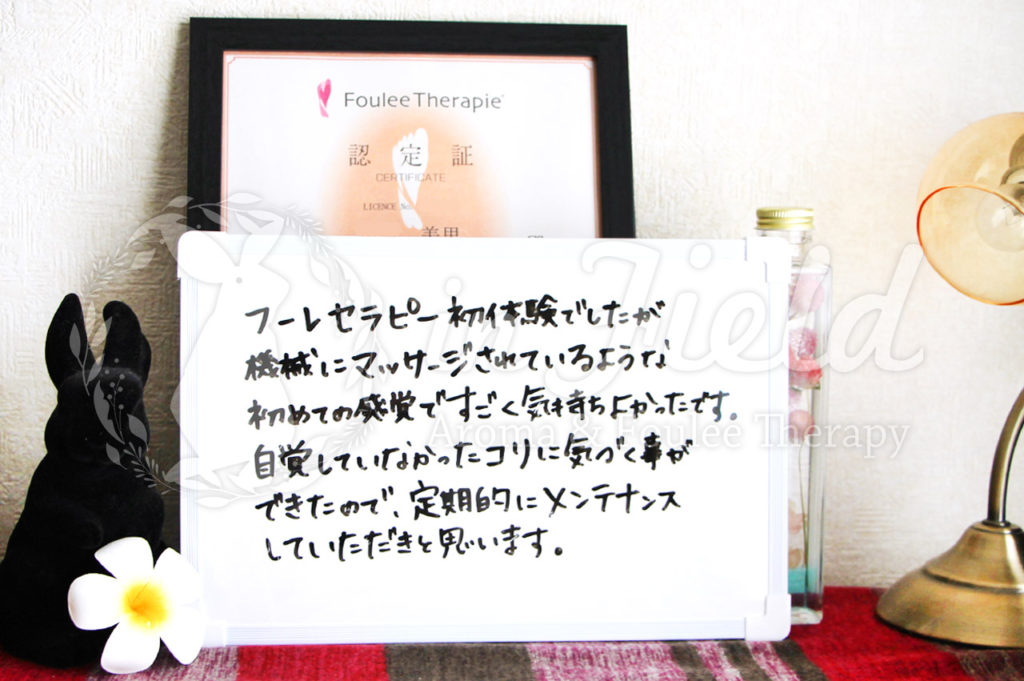 Foulee Therapie
認定証
CERTIFICATE
LICENCE No
in Field
Aroma & Foulee Therapy
フーレセラピー初体験でしたが
機械にマッサージされているような
初めての感覚ですごく気持ちよかったです。
自覚していなかったコリに気づく事が
できたので、定期的にメンテナンス
していただきと思います。